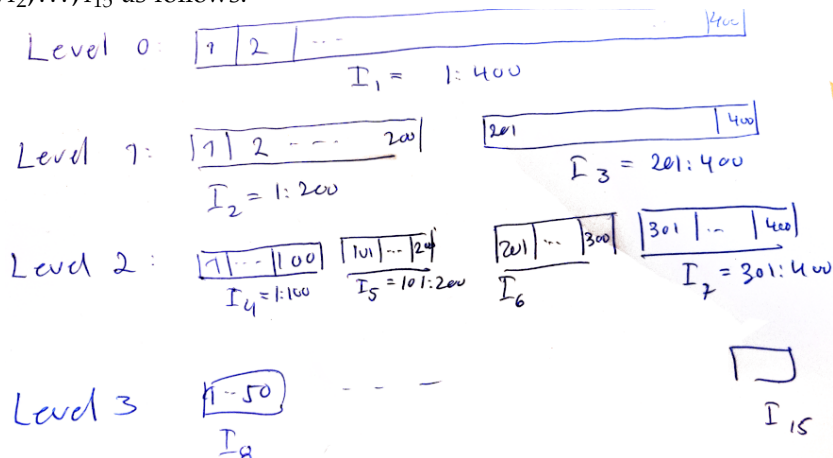 I₂, …, I₁₅ as follows.
Level 0: 1 2 ... 400
I₁ = 1:400
Level 1: 1 2 --- 200 201 400
I₂ = 1:200 I₃ = 201:400
Level 2: 1 ... 100 101 ... 20 201 ... 300 301 ... 400
I₄=1:100 I₅=101:200 I₆ I₇ = 301:400
Level 3 1--50 ---
I₈ I₁₅